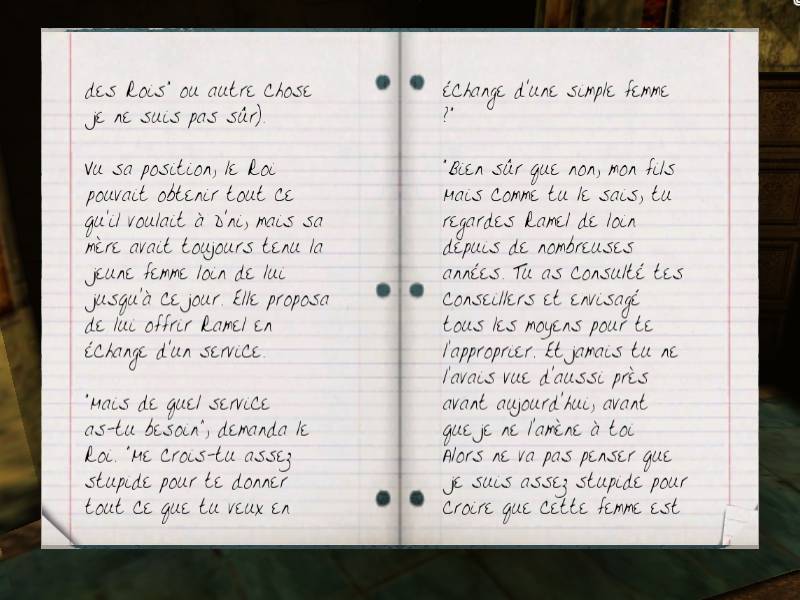 des Rois" ou autre chose
je ne suis pas sûr).
Vu sa position, le Roi
pouvait obtenir tout ce
qu'il voulait à D'ni, mais sa
mère avait toujours tenu la
jeune femme loin de lui
jusqu'à ce jour. Elle proposa
de lui offrir Ramel en
échange d'un service.
"Mais de quel service
as-tu besoin", demanda le
Roi. "Me crois-tu assez
stupide pour te donner
tout ce que tu veux en
échange d'une simple femme
?"
"Bien sûr que non, mon fils
Mais comme tu le sais, tu
regardes Ramel de loin
depuis de nombreuses
années. Tu as consulté tes
conseillers et envisagé
tous les moyens pour te
l'approprier. Et jamais tu ne
l'avais vue d'aussi près
avant aujourd'hui, avant
que je ne l'amène à toi
Alors ne va pas penser que
je suis assez stupide pour
croire que cette femme est